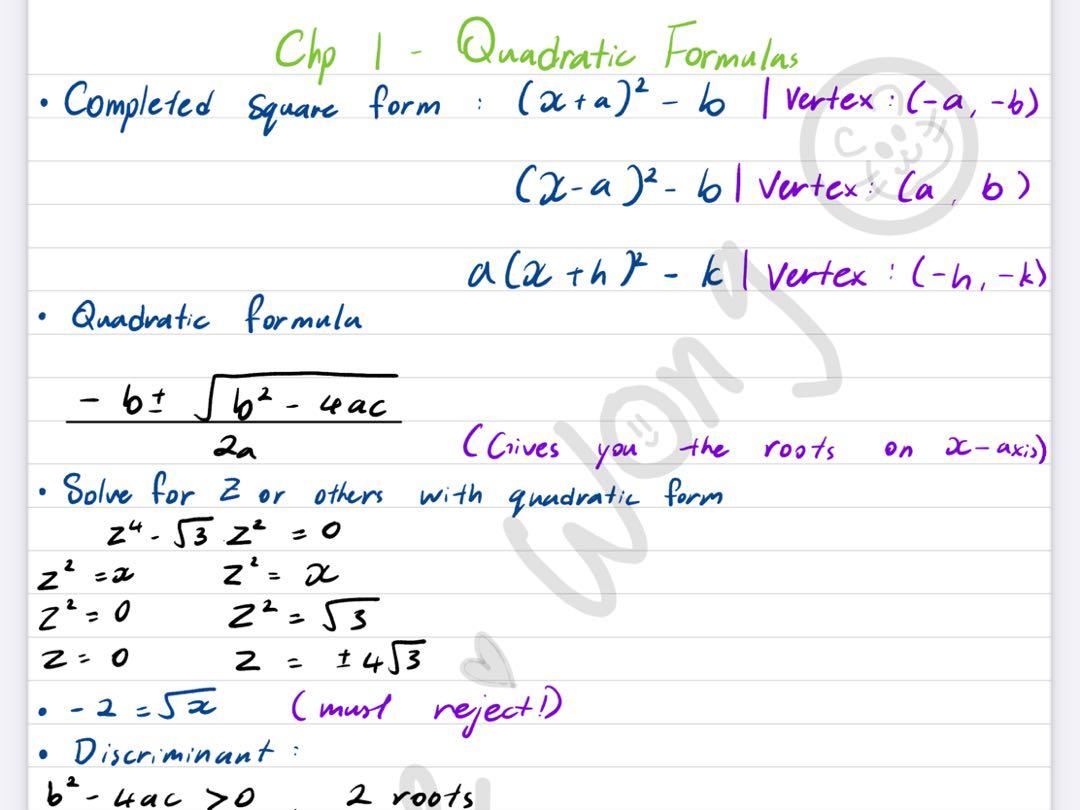 Chp 1 - Quadratic Formulas
• Completed square form : (x+a)² - b | Vertex : (-a, -b)
(x-a)² - b | Vertex : (a, b)
a(x+h)² - k | Vertex : (-h, -k)
• Quadratic formula
-b ± √(b² - 4ac)
2a (Gives you the roots on x-axis)
• Solve for Z or others with quadratic form
z⁴ - √3 z² = 0
z² = x z² = x
z² = 0 z² = √3
z = 0 z = ± 4√3
• -2 = √x (must reject!)
• Discriminant :
b² - 4ac > 0 2 roots
Wong